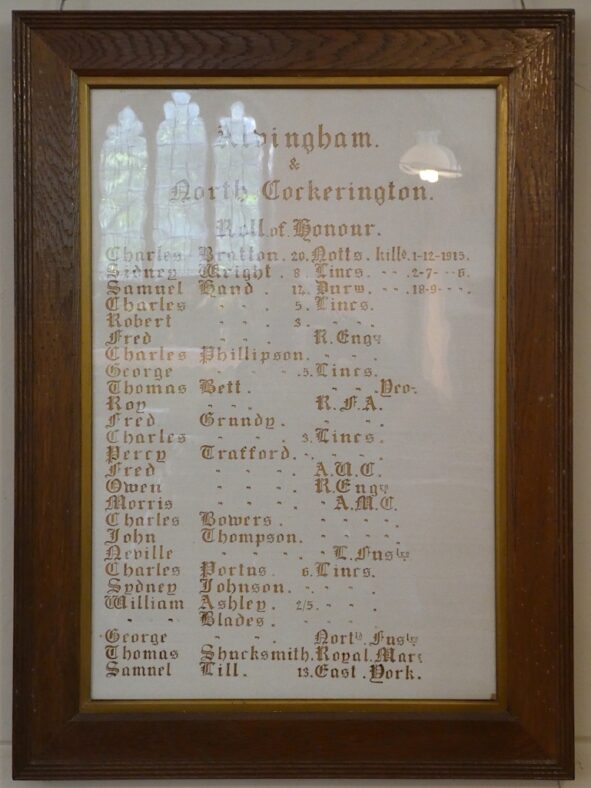 Alvingham.
&
North Cockerington.
Roll of Honour.
Charles Bratton. 20. Notts. killd. 1-12-1915.
Sidney Wright. 8. Lincs. - - . -2-7- - 6.
Samuel Hand. 12. Durm. - - . -18-9- - - .
Charles - - . 5. Lincs.
Robert - - . 3. - - .
Fred - - . R. Engrs
Charles Phillipson. - - .
George - - - . .5. Lincs.
Thomas Bett. - - . Yeo-.
Roy - - . R.F.A.
Fred Grundy. - - .
Charles - - . 3. Lincs.
Percy Trafford. - . - - .
Fred - - . A.V.C.
Owen - - . R. Engrs
Morris - - . - A.M.C.
Charles Bowers. - - - .
John Thompson. - - - .
Neville - - - . L. Fuslrs
Charles Portus. 6. Lincs.
Sydney Johnson. - . - - .
William Ashley. 2/5. - - .
- - Blades. - - - .
George - - . Northd. Fuslrs
Thomas Shucksmith. Royal. Mar:
Samuel Lill. 13. East. York.